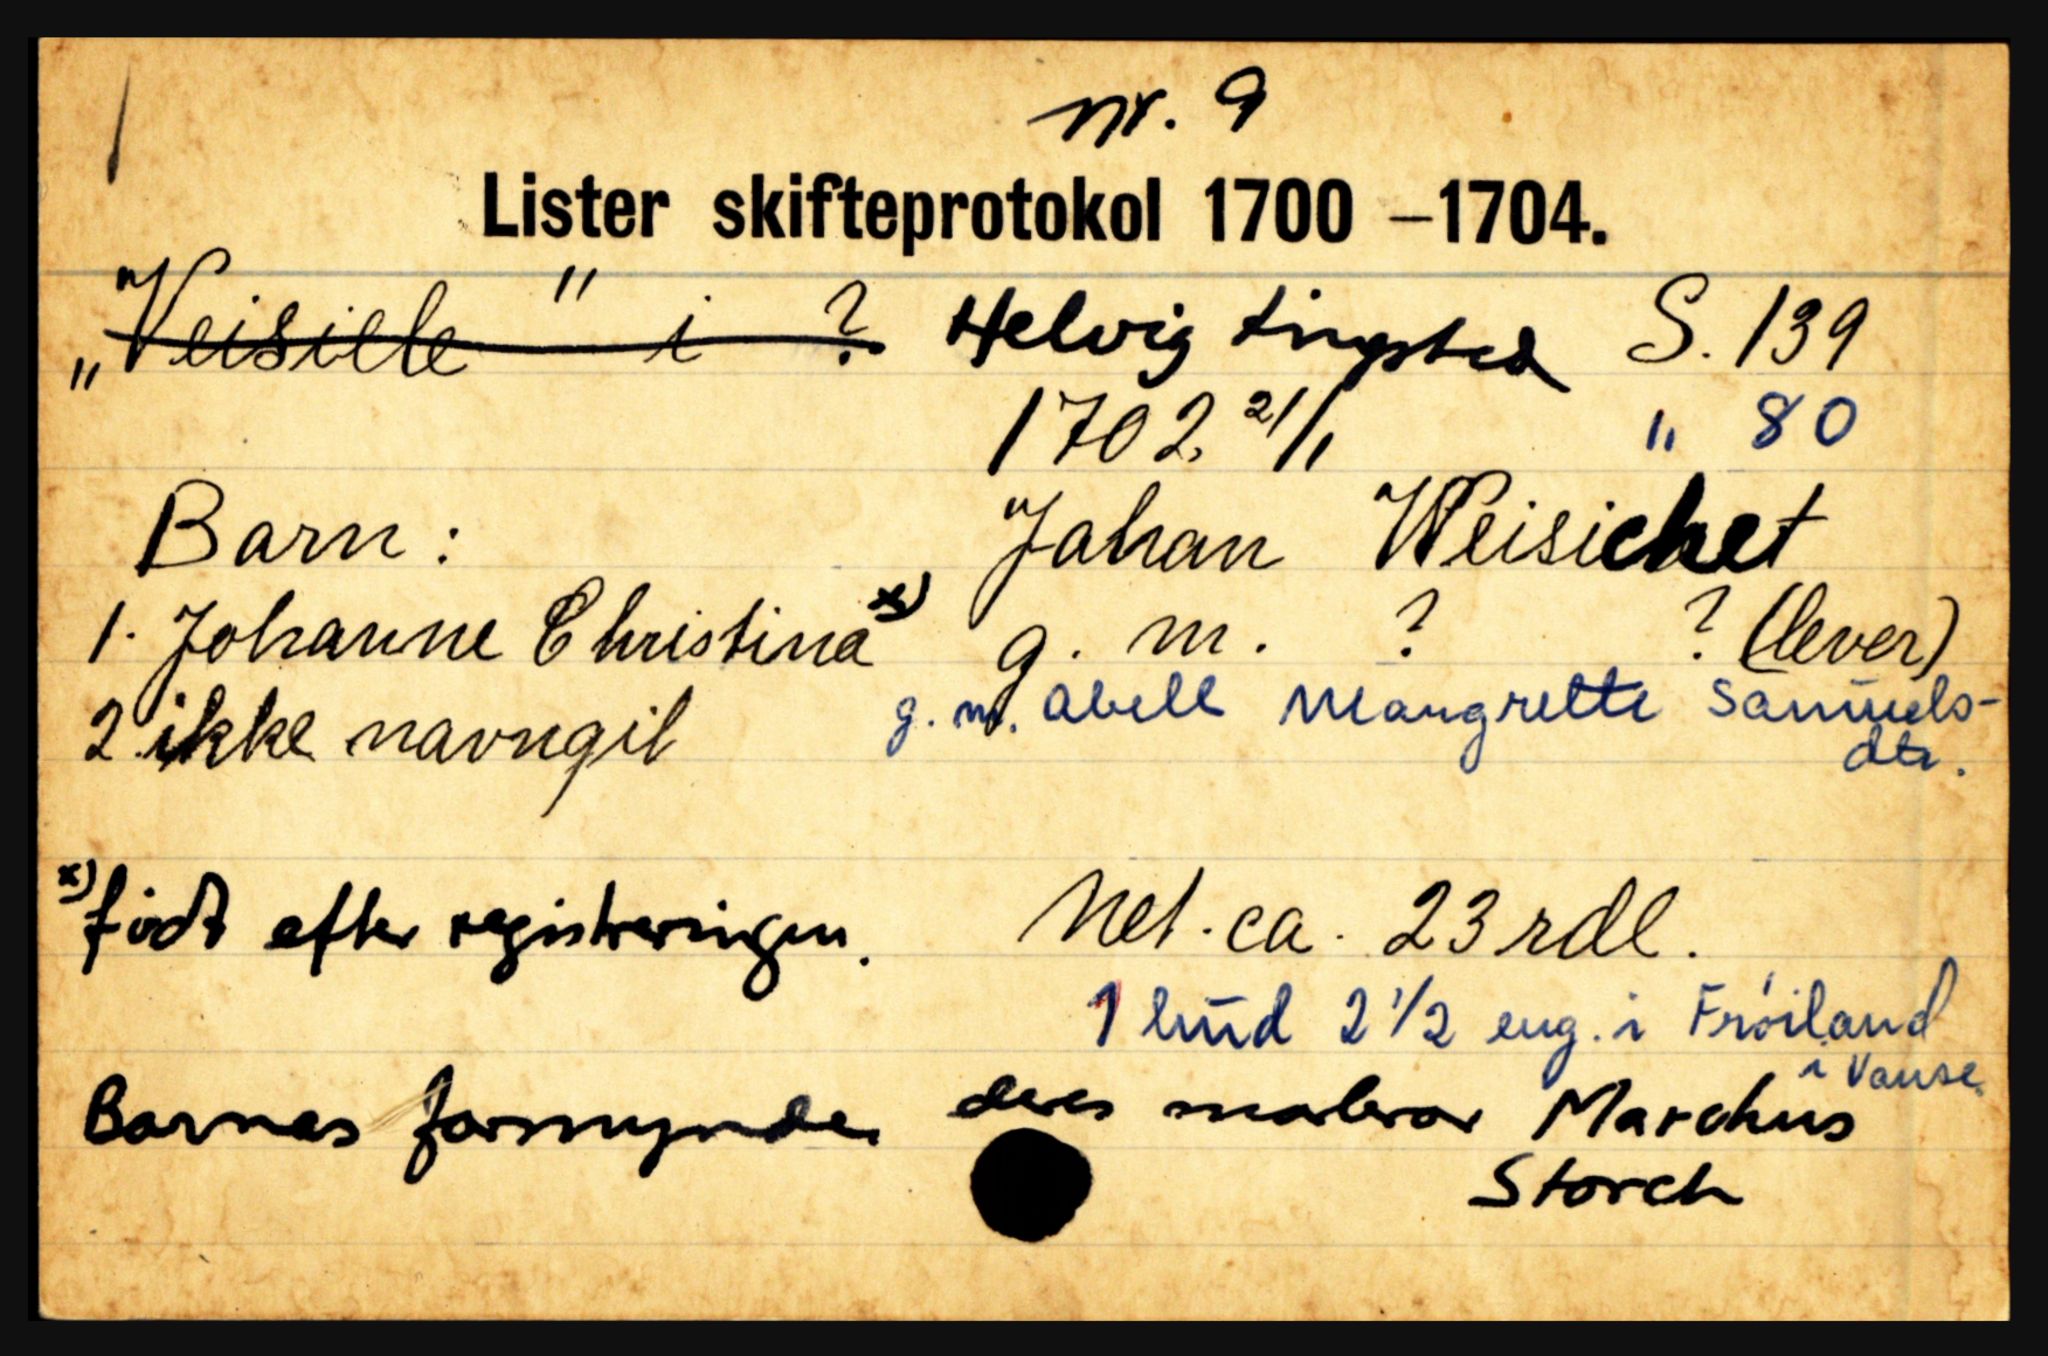 nr. 9
Lister skifteprotokol 1700 –1704.
„Veisille" i ? Helvig tingsted S. 139
1702 21/11 " 80
Barn: Johan Weisichet
1. Johanne Christina x) g. m. ? ? (lever)
2 ikke navngit g. m. Abell Mangrette Samuels-
dtr.
x) født efter registreringen. Net. ca. 23 rdl.
1 hud 2 1/2 eng. i Frøiland
i Vanse.
Barnas formynder deres morbror Marchus
Storch